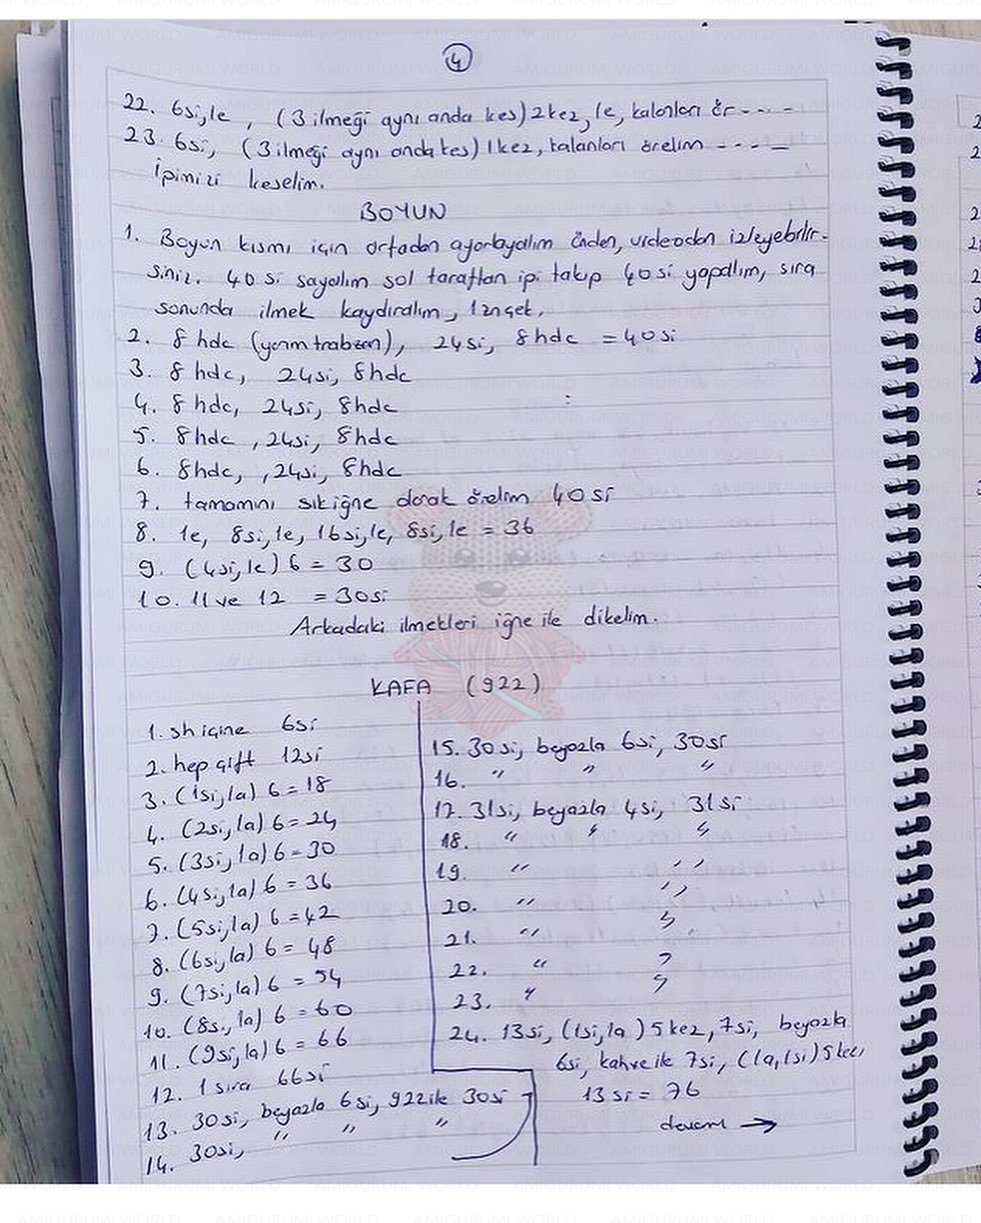 4
22. 6si, 1e, (3 ilmeği aynı anda kes) 2kez, 1e, kalanları ör - - - -
23. 6si, (3 ilmeği aynı anda kes) 1kez, kalanları örelim - - - - -
ipimizi keselim.
BOYUN
1. Boyun kısmı için ortadan ayarlayalım önden, videodan izleyebilir-
siniz. 40 si sayalım sol taraftan ipi takıp 40 si yapalım, sıra
sonunda ilmek kaydıralım, 1znçek.
2. 8 hdc (yarım trabzan), 24si, 8 hdc = 40 si
3. 8 hdc, 24si, 8hdc
4. 8 hdc, 24si, 8hdc
5. 8hdc, 24si, 8hdc
6. 8hdc, , 24si, 8hdc
7. tamamını sık iğne olarak örelim 40 si
8. 1e, 8si, 1e, 16si, 1e, 8si, 1e = 36
9. (4si, 1e) 6 = 30
10. 11 ve 12 = 30si
Arkadaki ilmekleri iğne ile dikelim.
KAFA (922)
1. sh içine 6si
2. hep çift 12si
3. (1si, 1a) 6 = 18
4. (2si, 1a) 6 = 24
5. (3si, 1a) 6 = 30
6. (4si, 1a) 6 = 36
7. (5si, 1a) 6 = 42
8. (6si, 1a) 6 = 48
9. (7si, 1a) 6 = 54
10. (8si, 1a) 6 = 60
11. (9si, 1a) 6 = 66
12. 1 sıra 66si
13. 30si, beyazla 6si, 922 ile 30si
14. 30si, " " "
15. 30 si, beyazla 6si, 30si
16. " " "
17. 31si, beyazla 4si, 31si
18. " " "
19. " "
20. " "
21. " "
22. " "
23. " "
24. 13si, (1si, 1a) 5 kez, 7si, beyazla
6si, kahve ile 7si, (1a, 1si) 5kez,
13 si = 76
devam →
AMIGURUMI WORLD